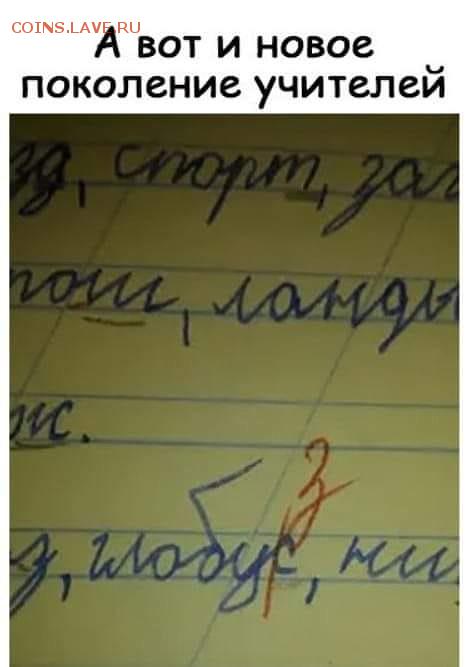 COINS.LAVE.RU
А вот и новое
поколение учителей
зд, спорт, заг
ош, ланды
ж.
з
з, глобус, ни